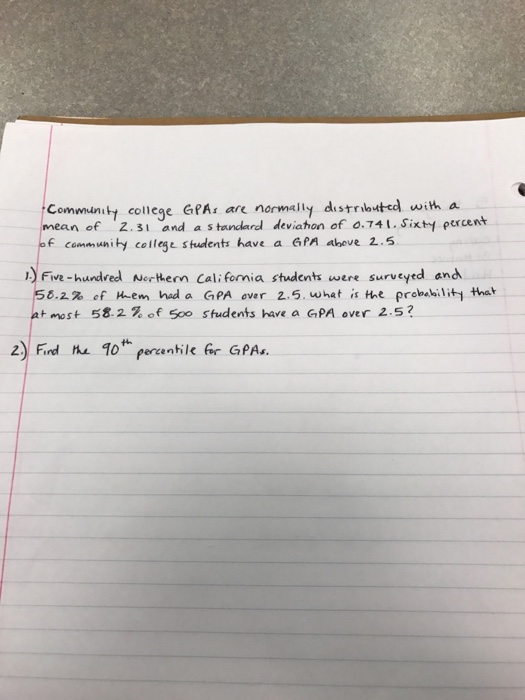 Community college GPAs are normally distributed with a
mean of 2.31 and a standard deviation of 0.741. Sixty percent
of community college students have a GPA above 2.5
1.) Five-hundred Northern California students were surveyed and
58.2% of them had a GPA over 2.5. what is the probability that
at most 58.2% of 500 students have a GPA over 2.5?
2.) Find the 90th percentile for GPAs.